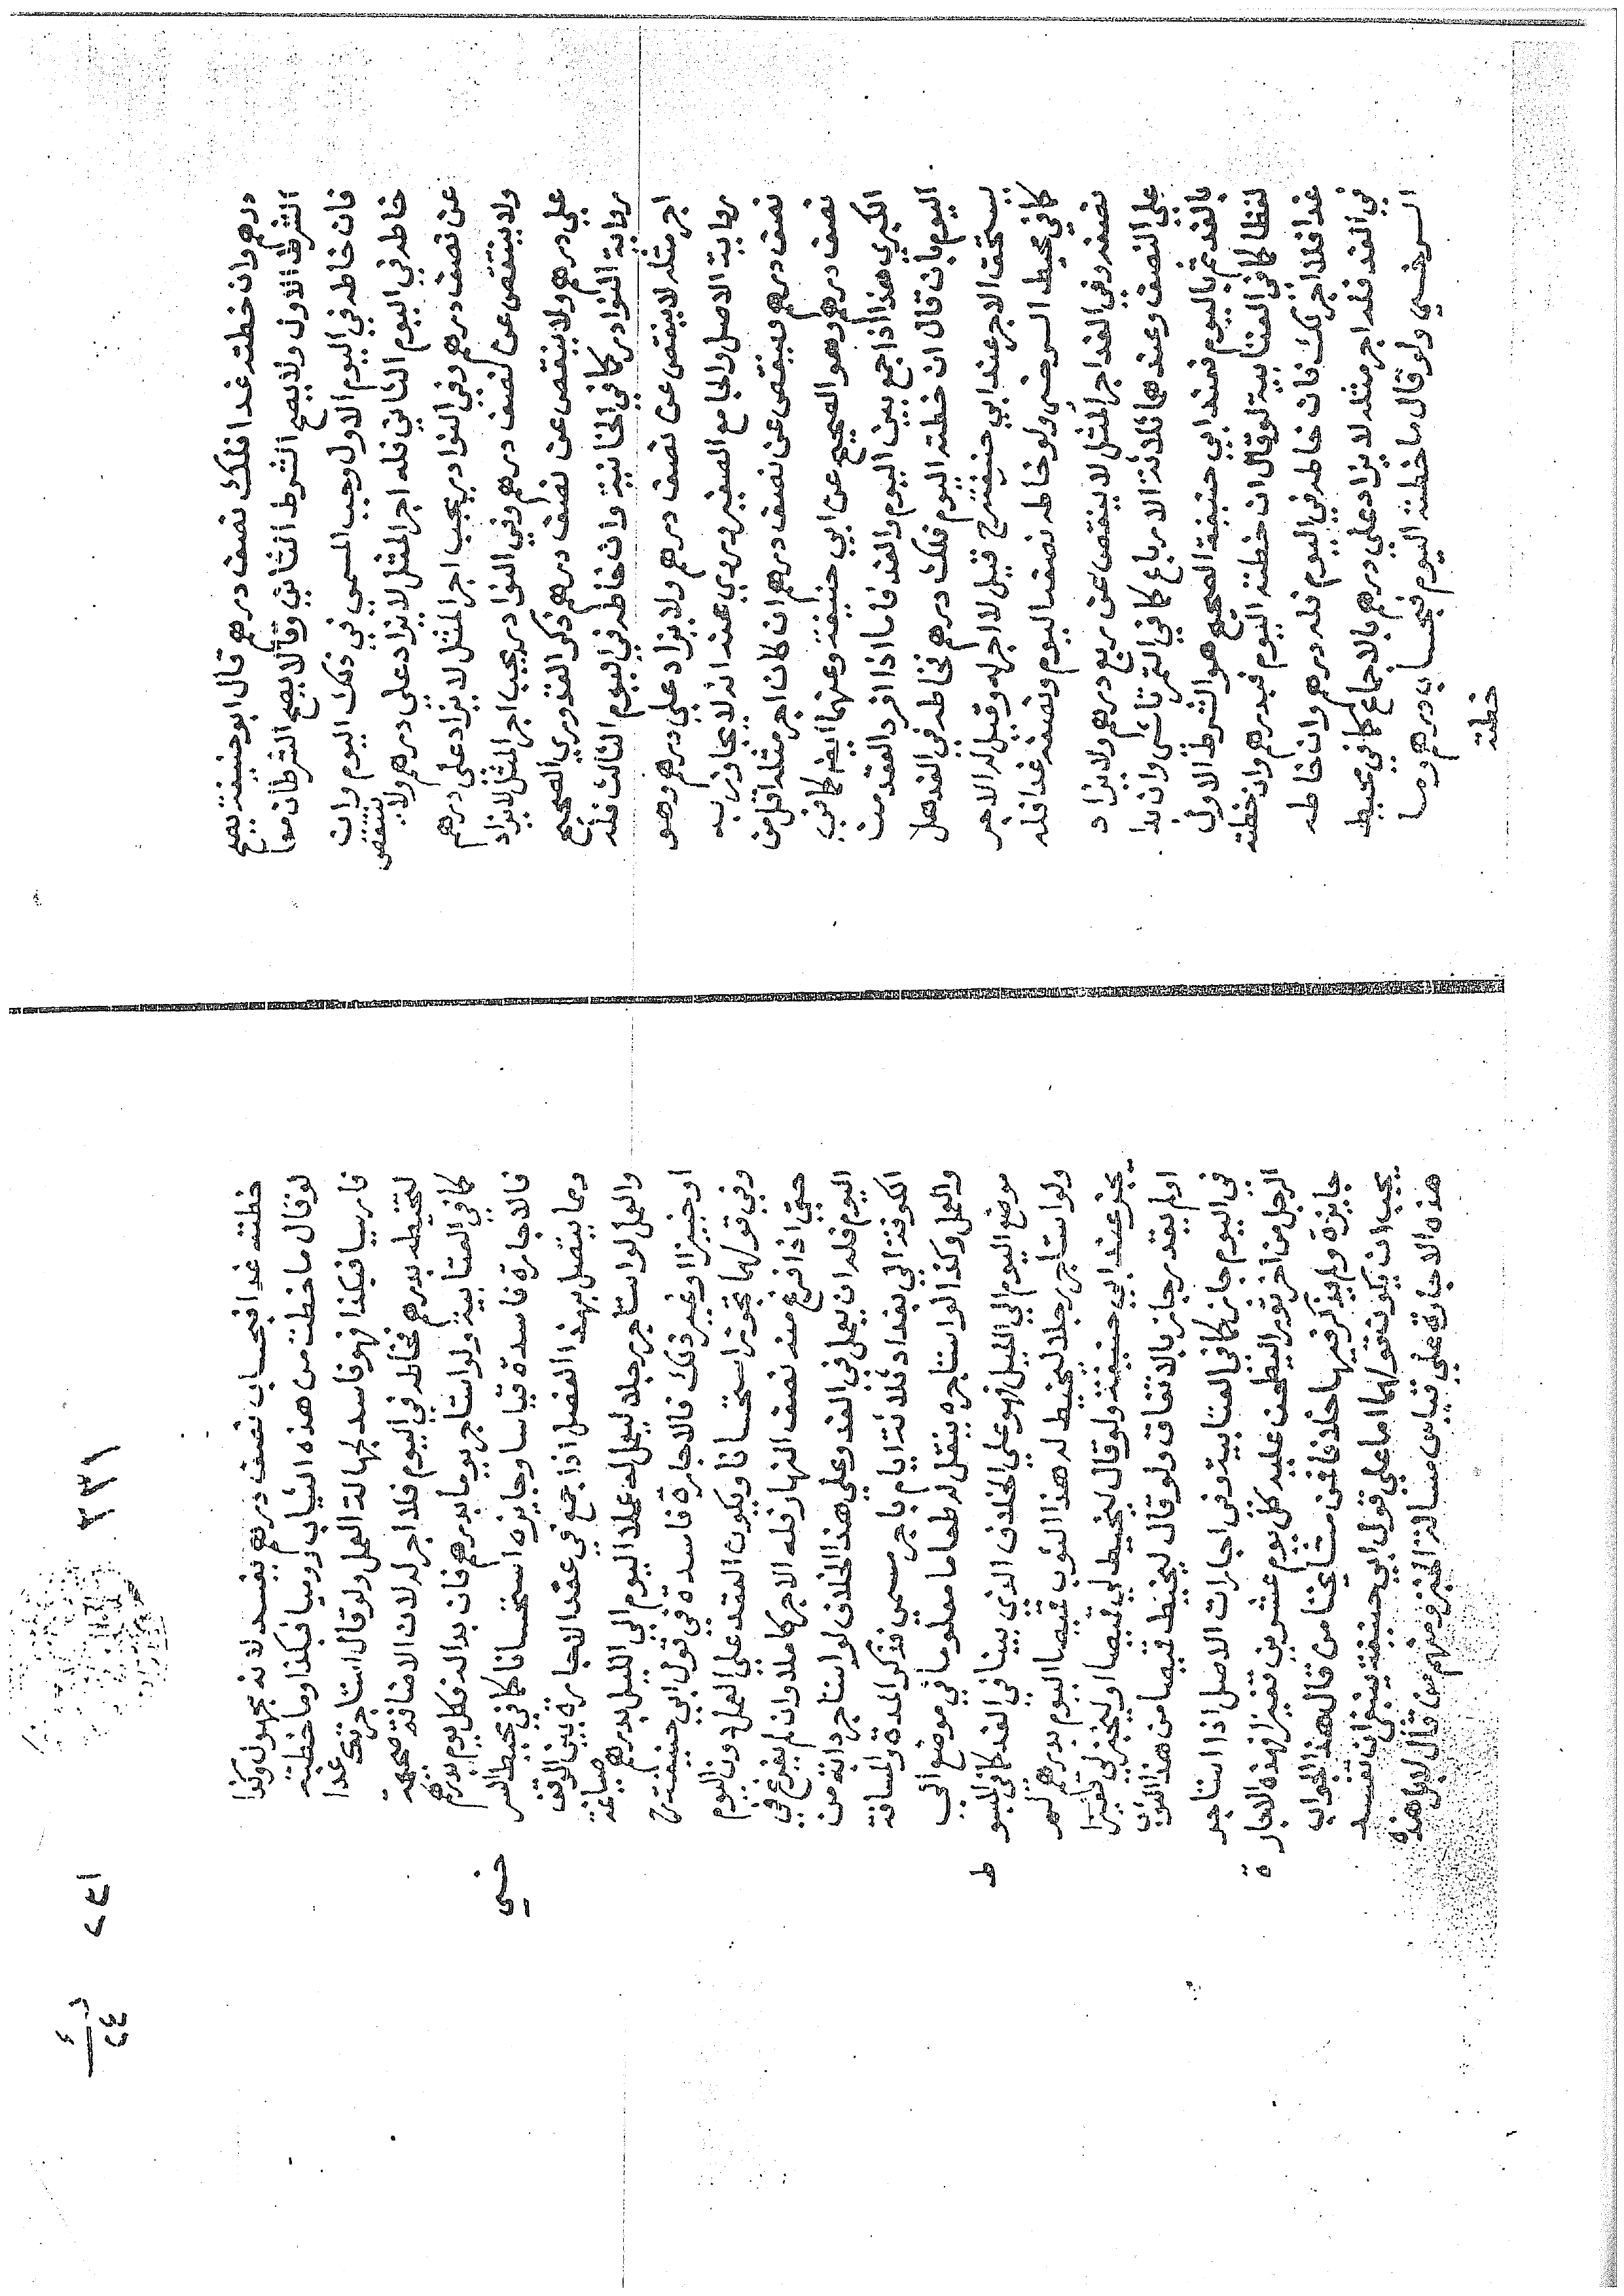 درهم وان خطته غدا فلك نصف درهم قال ابو حنيفة يصح
الشرط الاول ولا يصح الشرط الثاني وقالا يصح الشرطان معا
فان خاطه في اليوم الاول وجب المسمى في ذلك اليوم وان
خاطه في اليوم الثاني فله اجر المثل لا يزاد على درهم ولا ينتقص
عن نصف درهم وفي النوادر يجب اجر المثل لا يزاد على درهم
ولا ينتقص عن نصف درهم وفي النوادر يجب اجر المثل لا يزاد
على درهم ولا ينتقص عن نصف درهم ذكر القدوري الصحيح
رواية النوادر كما في الخانية وان خاطه في اليوم الثالث فله
اجر مثله لا ينتقص عن نصف درهم ولا يزاد على درهم وهو
رواية الاصل والجامع الصغير وروي عنه انه لا يجاوز به
نصف درهم وينتقص عن نصف درهم ان كان اجر مثله اقل من
نصف درهم وهو الصحيح عن ابي حنيفة وعنهما ايضا كما في
الكبرى هذا اذا جمع بين اليوم والغد فاما اذا افرد العقد من
اليوم بان قال ان خطته اليوم فلك درهم فخاطه في الغد هل
يستحق الاجر عند ابي حنيفة رح قيل لا اجر له وقيل له الاجر
كما في محيط السرخسي ولو خاطه نصفه اليوم ونصفه غدا فله
نصفه وفي الغد اجر المثل لا ينتقص عن ربع درهم ولا يزاد
على النصف وعندهما ثلاثة الارباع كما في التمرتاشي وان بدا
بالغد ثم باليوم فعند ابي حنيفة الصحيح هو الشرط الاول
لفظا كما في العتابية لو قال ان خطته اليوم فبدرهم وان خطته
غدا فلا اجر لك فان خاطه في اليوم فله درهم وان خاطه
في الغد فله اجر مثله لا يزاد على درهم بالاجماع كما في محيط
السرخسي ولو قال ما خطته اليوم فبحساب درهم وما
خطته
خطته غدا فبحساب نصف درهم يفسد لانه مجهول وكذا
لو قال ما خطت من هذه الثياب روميا فبكذا وما خطته
فارسيا فبكذا فهو فاسد لجهالة العمل ولو قال استاجرتك غدا
لتخيطه بدرهم فخاطه في اليوم فلا اجر له لان الاضافة صحيحة
كما في العتابية ولو استاجر يوما بدرهم فان بدا له فكل يوم بدرهم
فالاجارة فاسدة قياسا وجايزه استحسانا كما في محيط السر
خسي
ومما يتصل بهذا الفصل اذا جمع في عقد الاجارة بين الوقت
والعمل لو استاجر رجلا ليعمل له عملا اليوم الى الليل بدرهم صياغة
او خبزا او غير ذلك فالاجارة فاسدة في قول ابي حنيفة رح
وفي قولهما تجوز استحسانا ويكون العقد على العمل دون اليوم
حتى اذا فرغ منه نصف النهار فله الاجر كاملا وان لم يفرغ في
اليوم فله ان يعمل في الغد وعلى هذا الخلاف لو استاجر دابة من
الكوفة الى بغداد ثلاثة ايام باجر مسمى فذكر المدة والمسافة
والعمل وكذا لو استاجره ينقل له طعاما معلوما في موضع الى
موضع اليوم الى الليل فهو على الخلاف الذي بينا في الغد كما في المبسو
ط
ولو استاجر رجلا ليخيط له هذا الثوب قميصا اليوم بدرهم لم
يجز عند ابي حنيفة ولو قال ليخيط لي قميصا او ليخبز لي قفيزا
او لم يقدر جاز بالاتفاق ولو قال ليخيط قميصا من هذا الثوب
في اليوم جاز كما في العتابية وفي اجارات الاصل اذا استاجر
الرجل من اخر ثورا ليطحن عليه كل يوم عشرين قفيزا فهذه الاجار
ة
جايزة ولم يذكر فيها خلافا فمن مشايخنا من قال هذا الجواب
يجب ان يكون قولهما اما على قول ابي حنيفة ينبغي ان تفسد
هذه الاجارة على قياس مسالة الخبز ومنهم من قال لا بل هذه
٣٣١
٢٤١
٢٤